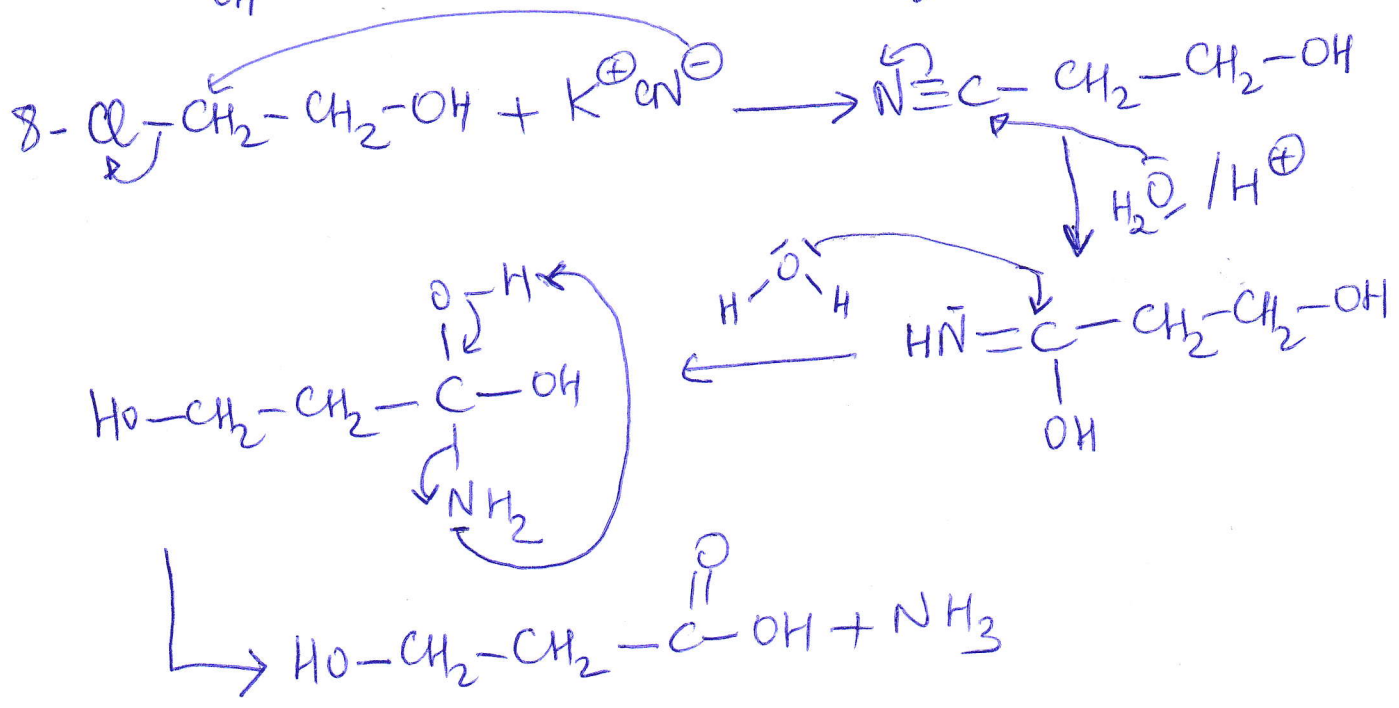 8- Cl-CH2-CH2-OH + K⊕ CN⊖ → N≡C-CH2-CH2-OH
H2O /H⊕
O-H
H O H
HN=C-CH2-CH2-OH
OH
HO-CH2-CH2-C-OH
NH2
O
HO-CH2-CH2-C-OH + NH3